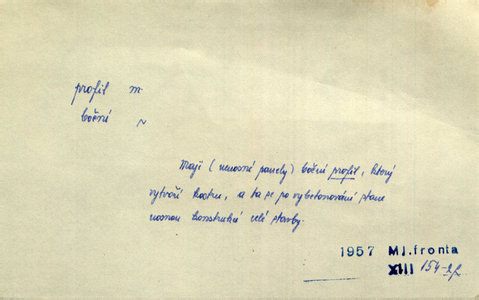 profil m
boční ~
Mají (nenosné panely) boční profil, který
vytvoří kostru, a ta se po vybetonování stane
nosnou konstrukcí celé stavby.
1957 Ml.fronta
XIII 154-2/